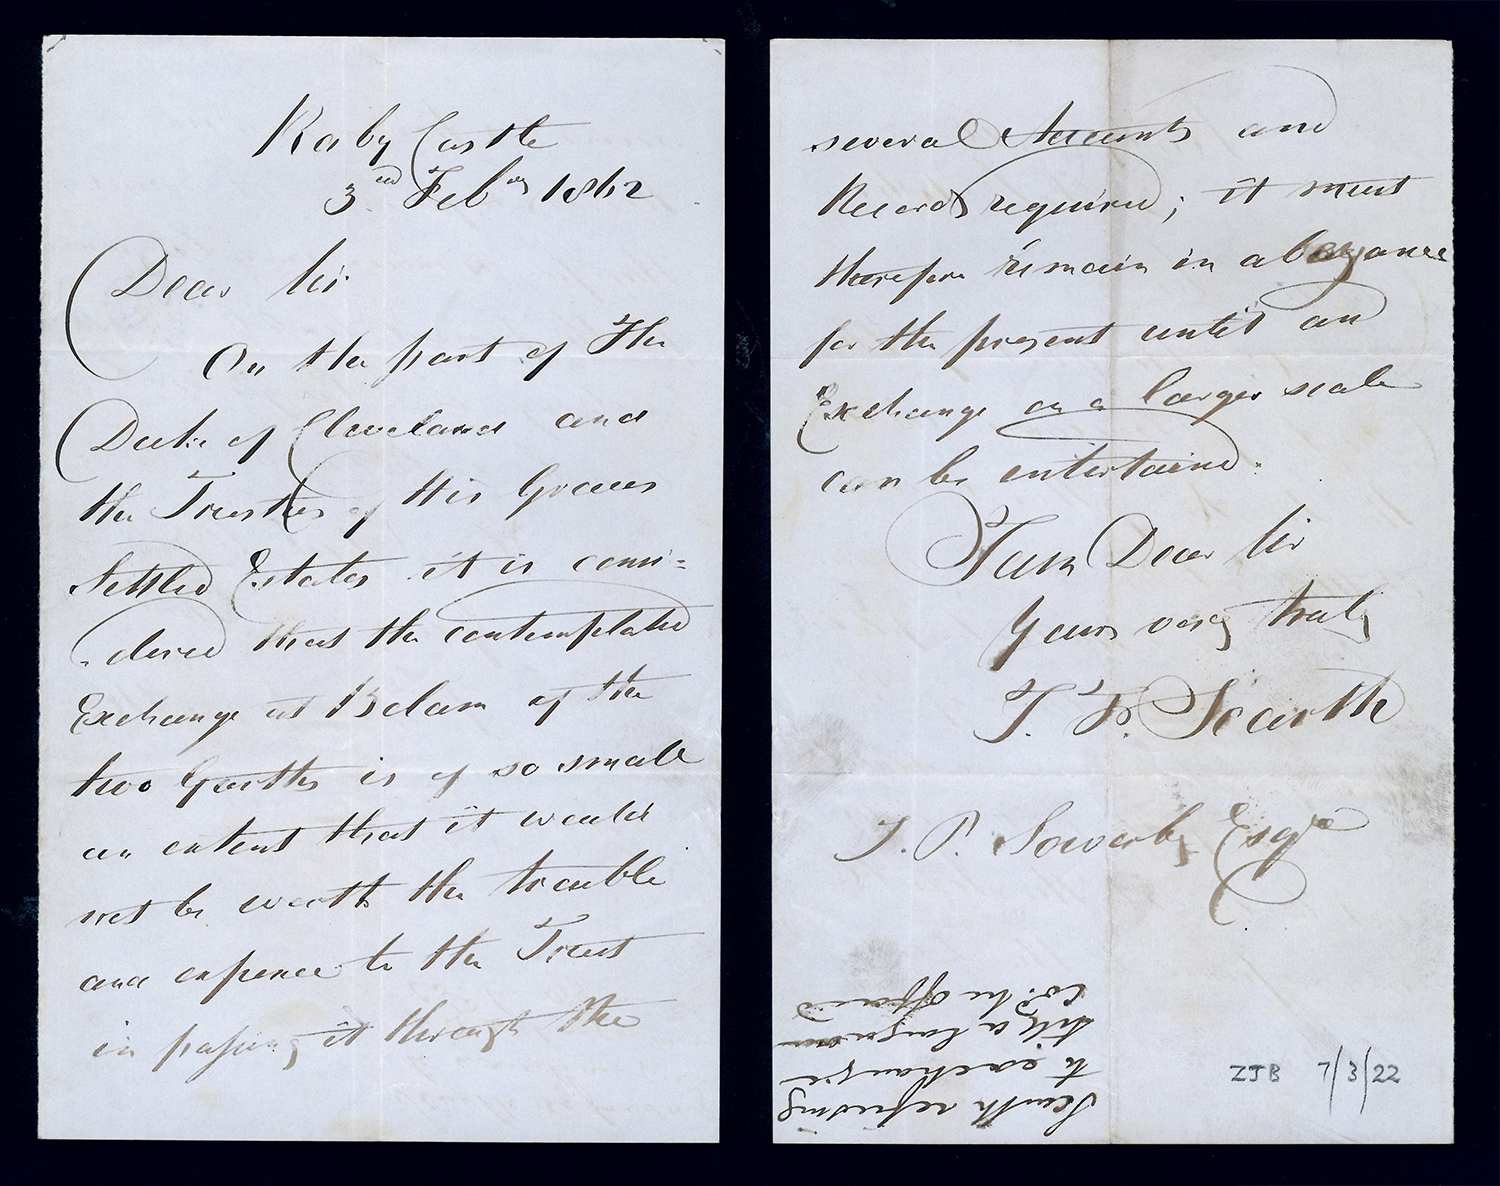 Raby Castle
3rd Feby 1862
Dear Sir
On the part of The
Duke of Cleveland and
the Trustees of His Graces
Settled Estates it is consi=
-dered that the contemplated
Exchange at Bolam of the
two Garths is of so small
an extent that it would
not be worth the trouble
and expence to the Trust
in passing it through the
several Accounts and
Records required; it must
therefore remain in abeyance
for the present until an
Exchange on a larger scale
can be entertained.
I am Dear Sir
Yours very truly
T. F. Scarth
T. P. Sowerby Esqre
Scarth refusing
to exchange
till a larger one
cod. be offered
ZJB 7/3/22